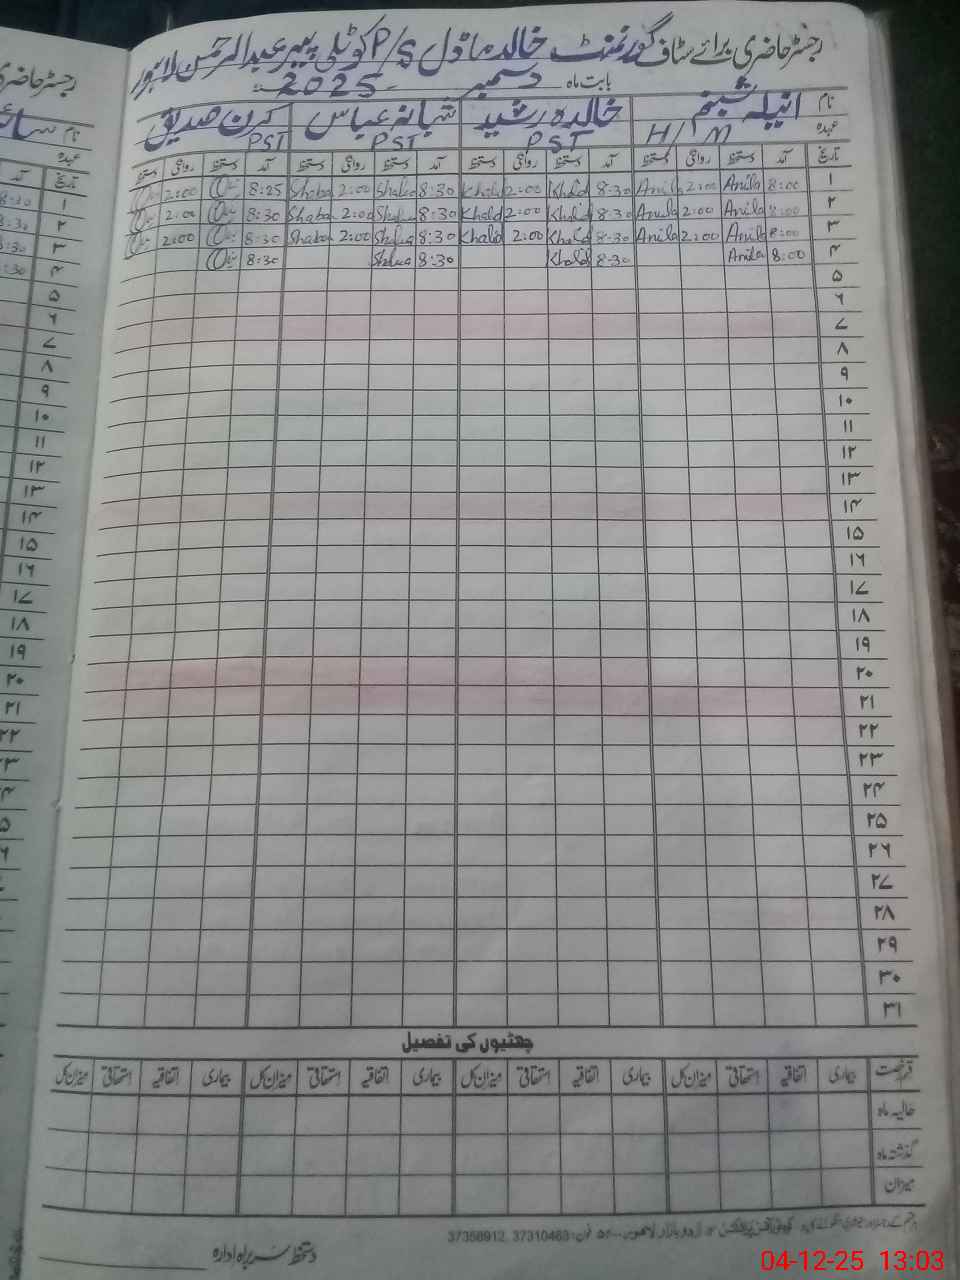 رجسٹر حاضری برائے سٹاف گورنمنٹ خالد ماڈل P/S کوٹلی پیر عبدالرحمن لاہور
بابت ماہ دسمبر 2025
نام انیلہ شبنم خالدہ رشید شبانہ عباس کرن صدیق
عہدہ H/M PST PST PST
تاریخ آمد دستخط روانگی دستخط آمد دستخط روانگی دستخط آمد دستخط روانگی دستخط آمد دستخط روانگی دستخط
۱ 8:00 Anila 2:00 Anila 8:30 Khalid 2:00 Khalid 8:30 Shaba 2:00 Shaba 8:25 2:00
۲ 8:00 Anila 2:00 Anila 8:30 Khalid 2:00 Khalid 8:30 Shaba 2:00 Shaba 8:30 2:00
۳ 8:00 Anila 2:00 Anila 8:30 Khalid 2:00 Khalid 8:30 Shaba 2:00 Shaba 8:30 2:00
۴ 8:00 Anila 8:30 Khalid 8:30 Shaba 8:30
۵
۶
۷
۸
۹
۱۰
۱۱
۱۲
۱۳
۱۴
۱۵
۱۶
۱۷
۱۸
۱۹
۲۰
۲۱
۲۲
۲۳
۲۴
۲۵
۲۶
۲۷
۲۸
۲۹
۳۰
۳۱
چھٹیوں کی تفصیل
قسم رخصت بیماری اتفاقیہ استحقاقی میزان کل بیماری اتفاقیہ استحقاقی میزان کل بیماری اتفاقیہ استحقاقی میزان کل بیماری اتفاقیہ استحقاقی میزان کل
حالیہ ماہ
گذشتہ ماہ
میزان
اردو بازار لاہور فون: 37310463, 37358912
دستخط سربراہ ادارہ
04-12-25 13:03